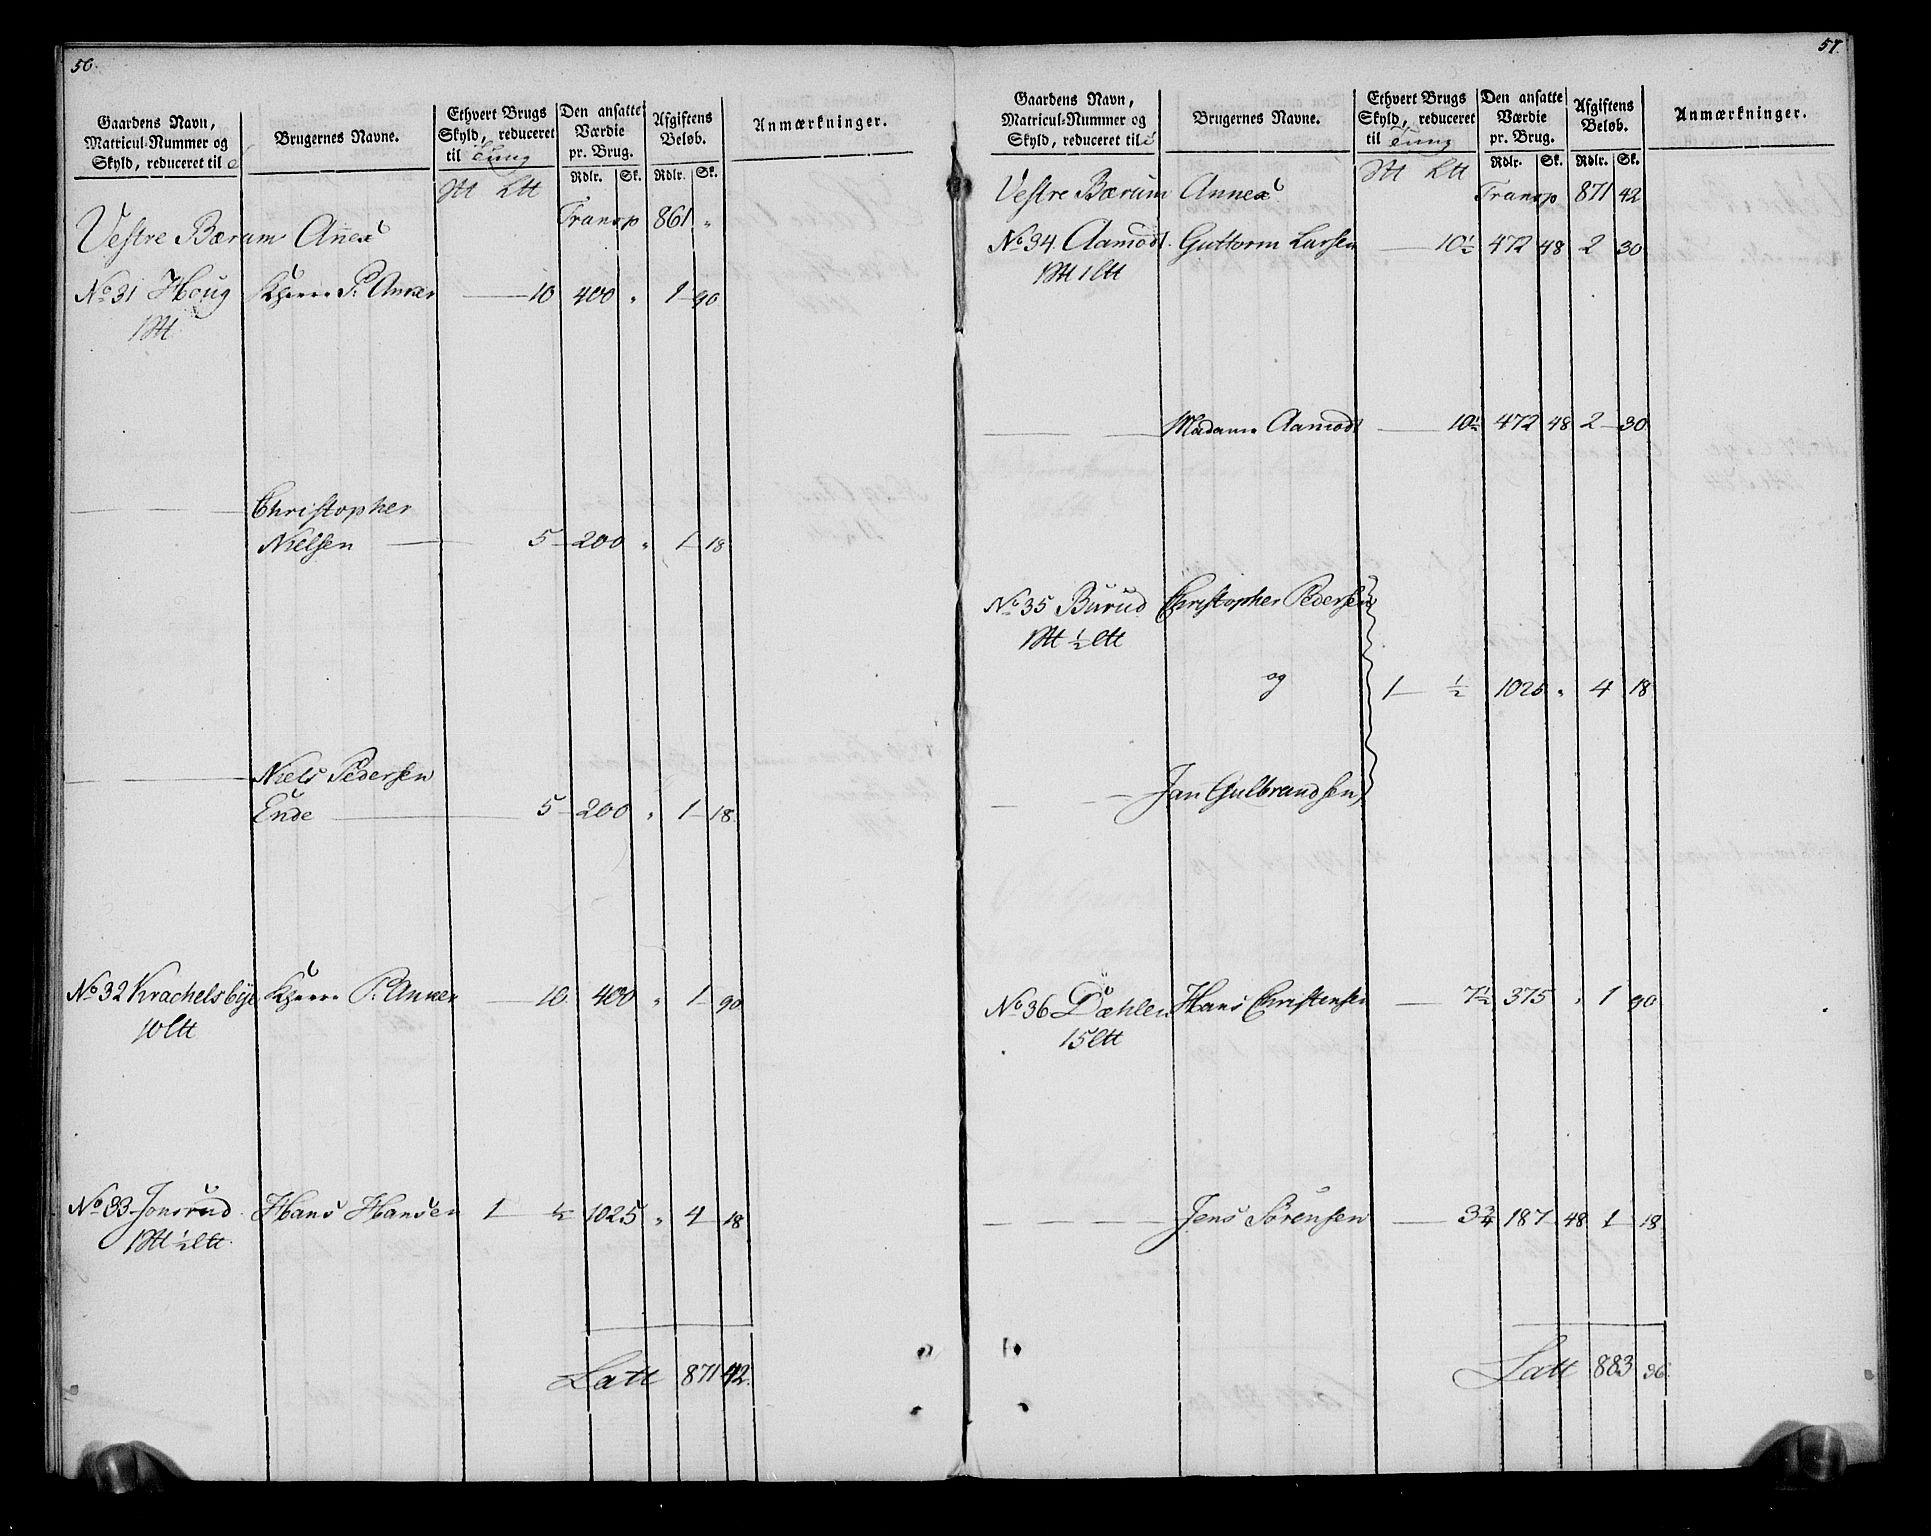 56.
Gaardens Navn, Matricul-Nummer og Skyld, reduceret til
Brugernes Navne.
Ethvert Brugs Skyld, reduceret til Tung
Den ansatte Værdie pr. Brug.
Afgiftens Beløb.
Anmærkninger.
Rdlr. Sk. Rdlr. Sk.
Vestre Bærum Annex Transp 861 "
No 31 Houg P. Anker 10 400 " 1 90
Christopher
Nielsen 5 200 " 1 18
Niels Pedersen
Ende 5 200 " 1 18
No 32 Krachelsbye P. Anker 10 400 " 1 90
10 Ltt
No 33 Jonsrud Hans Hansen 1 ½ 1025 " 4 18
½ Ltt
Latt 871 42.
57.
Gaardens Navn, Matricul-Nummer og Skyld, reduceret til
Brugernes Navne.
Ethvert Brugs Skyld, reduceret til Tung
Den ansatte Værdie pr. Brug.
Afgiftens Beløb.
Anmærkninger.
Rdlr. Sk. Rdlr. Sk.
Vestre Bærum Annex Transp 871 42
No 34 Aamodt Guttorm Larsen 10½ 472 48 2 30
1 Ltt
Madame Aamodt 10½ 472 48 2 30
No 35 Burud Christopher Pedersen
½ Ltt
og 1 ½ 1025 " 4 18
Jan Gulbrandsen
No 36 Dæhlen Hans Christensen 7½ 375 " 1 90
15 Ltt
Jens Sørensen 3¾ 187 48 1 18
Latt 883 36